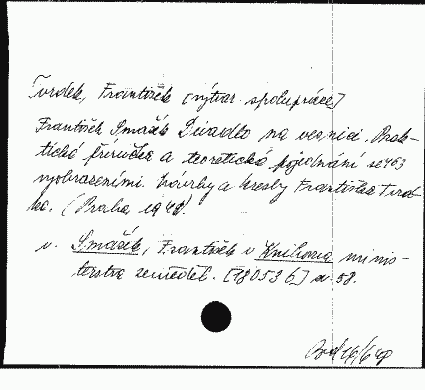 Tvrdek, František [výtvar. spolupráce]
František Smažík Divadlo na vesnici. Prak-
tická příručka a teoretická pojednání se 463
vyobrazeními. Návrhy a kresby Františka Tvrd-
ka. (Praha 1940).
v. Smažík, František v Knihovna minis-
terstva zeměděl. [180536] sv. 58.